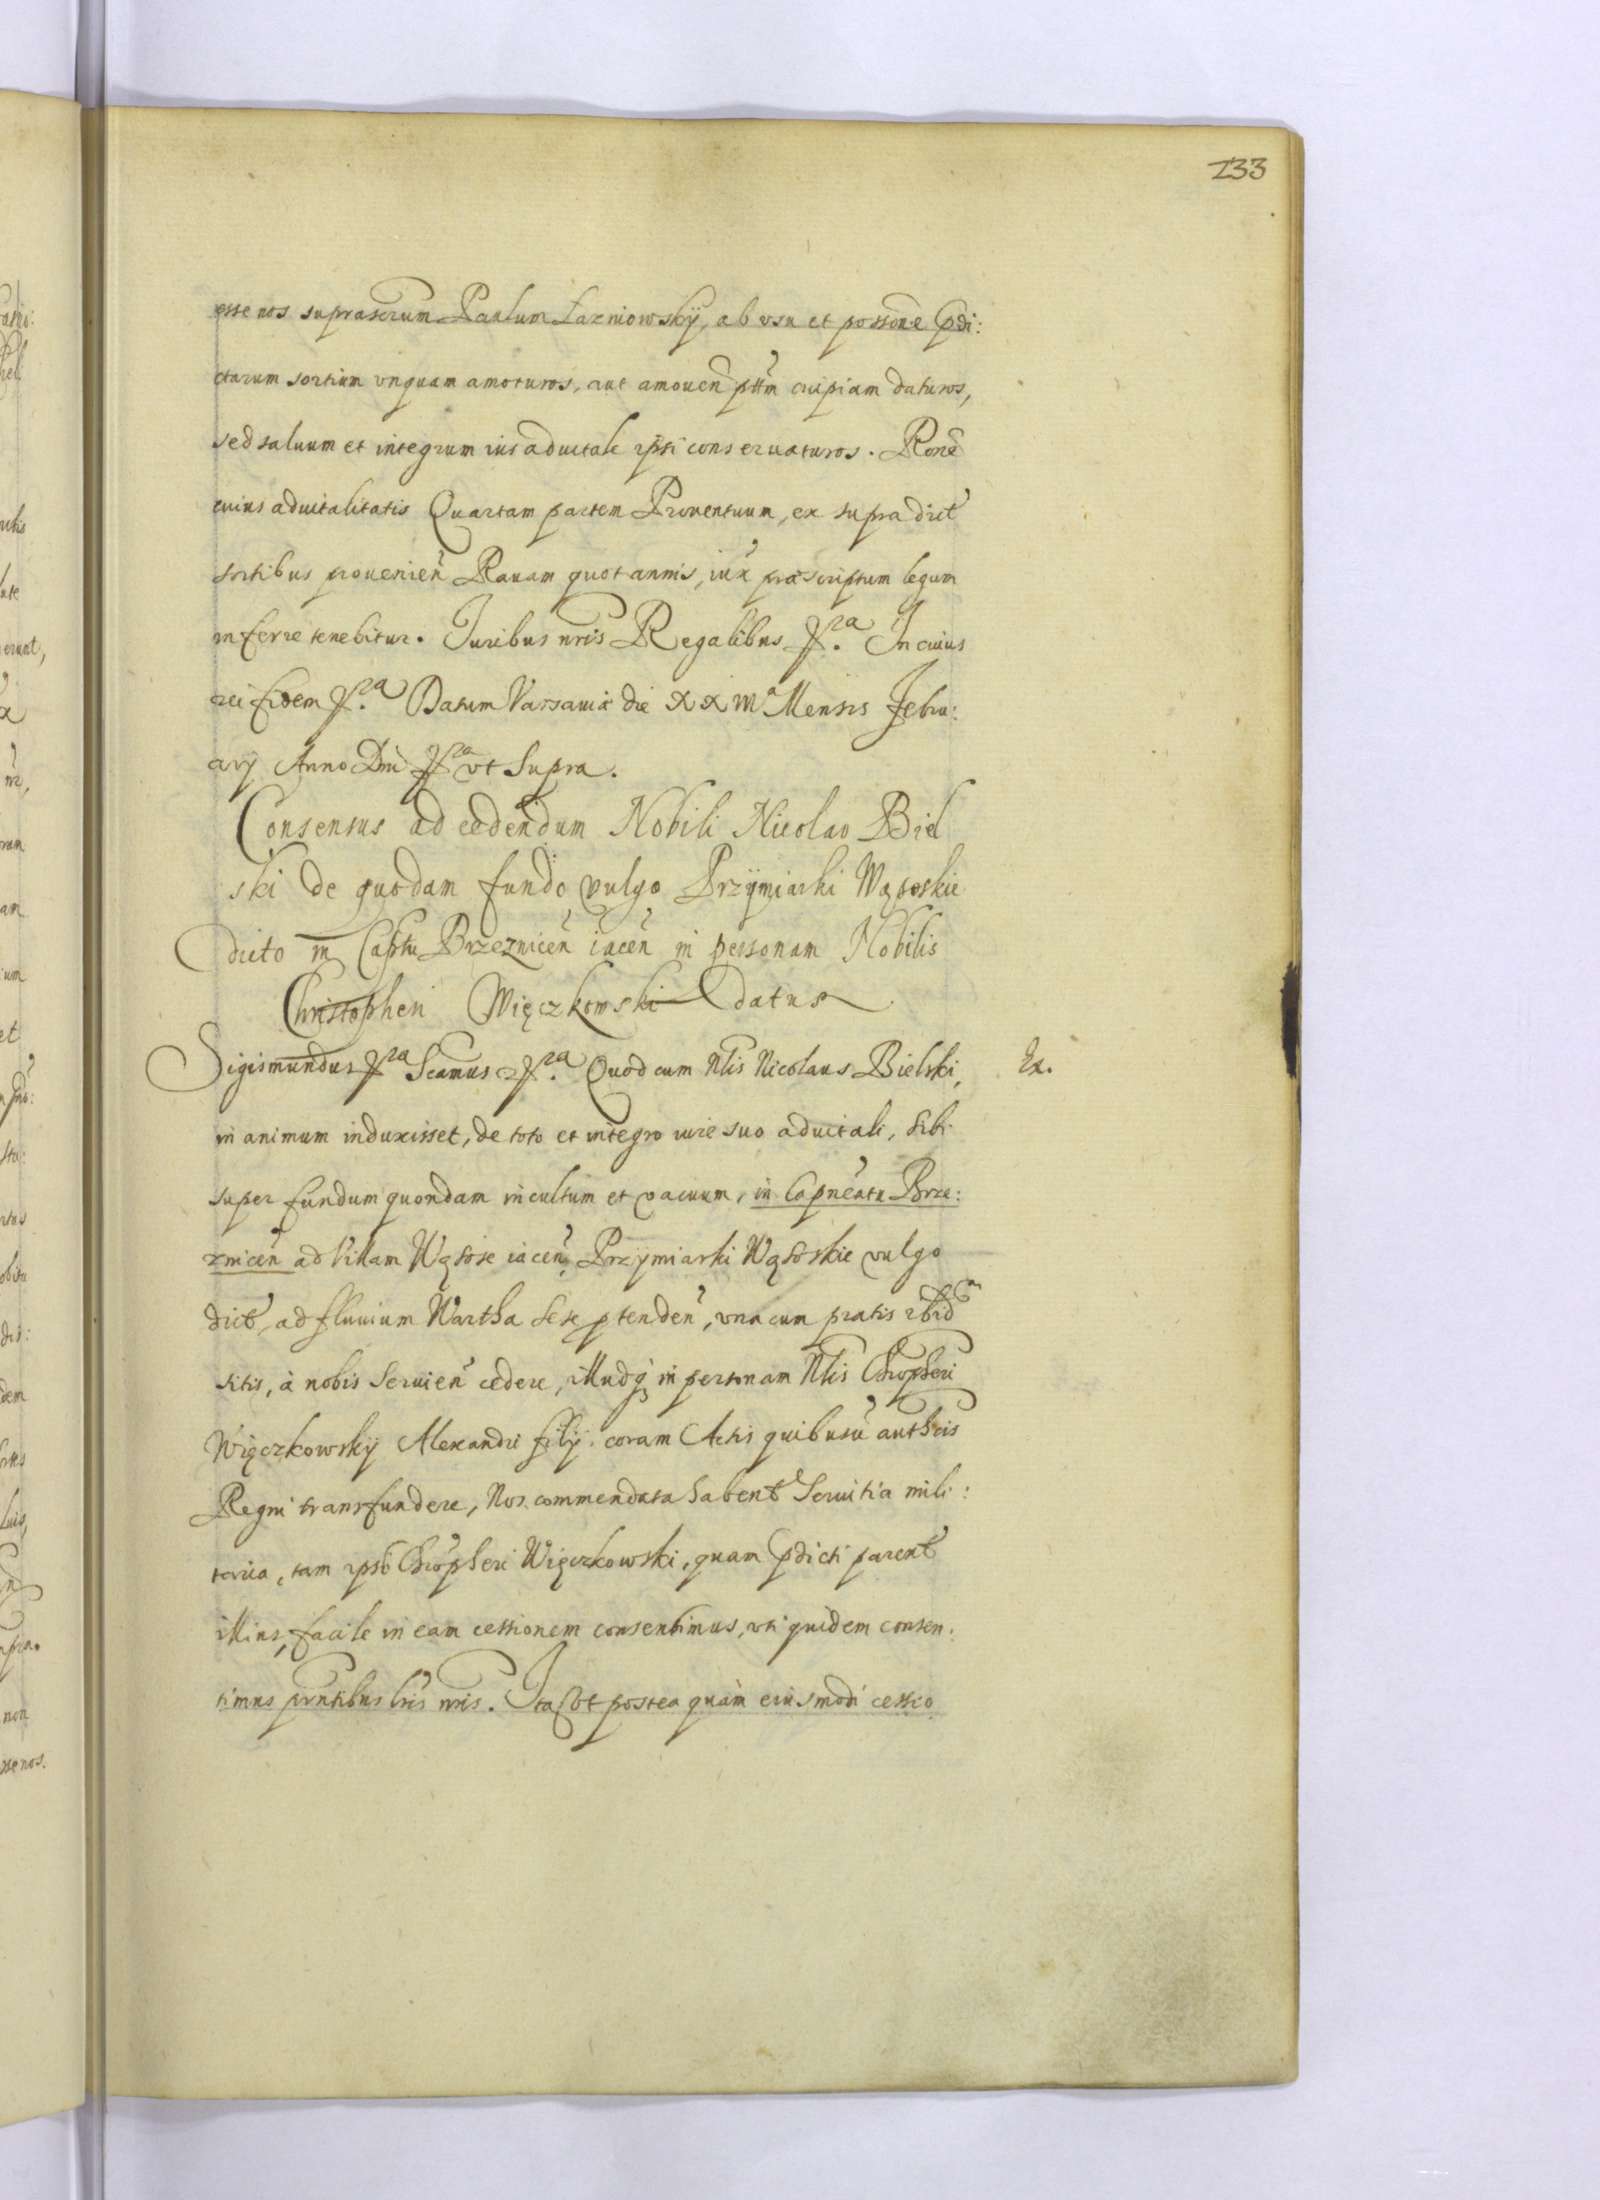 133
esse nos suprascrum Paulum Łazniowskÿ, ab vsu et possone pdi:
ctarum sortium vnquam amoturos, aut amouen pttm cuipiam daturos,
sed saluum et integrum ius aduitale ipsi conseruaturos. Rone
cuius aduitalitatis Quartam partem Prouentuum, ex supra dict
sortibus prouenien Rauam quotannis, iux præscriptum legum
inferre tenebitur. Juribus nris Regalibus &ra. In cuius
rei fidem &ra. Datum Varsauiæ die XX IIIa Mensis Febru:
arij Anno Dni &ra vt Supra.
Consensus ad cedendum Nobili Nicolao Biel
ski de quodam fundo vulgo Przÿmiarki Wąsoskie
dicto in Captu Brzeznicen iacen in personam Nobilis
Christopheri Więczkowski datus
Sigismundus &ra Scamus &ra. Quod cum Nlis Nicolaus Bielski,
Ex.
in animum induxisset, de toto et integro iure suo aduitali, sibi
super fundum quondam incultum et vacuum, in Capneatu Brze:
znicen ad Villam Wąsose iacen, Przymiarki Wąsoskie vulgo
dict, ad fluuium Wartha sese ptenden, vna cum pratis ibidm
sitis, à nobis seruien cedere, illudq in personam Nlis Chropheri
Więczkowskÿ Alexandri filÿ, coram Actis quibusu authcis
Regni transfundere, Nos commendata habent Seruitia mili:
taria, tam ipsi Chropheri Więczkowski, quam pdicti parent
illius, facile in eam cessionem consentimus, vti quidem consen:
timus pntibus lris nris. Ita vt postea quàm eiusmodi cessio